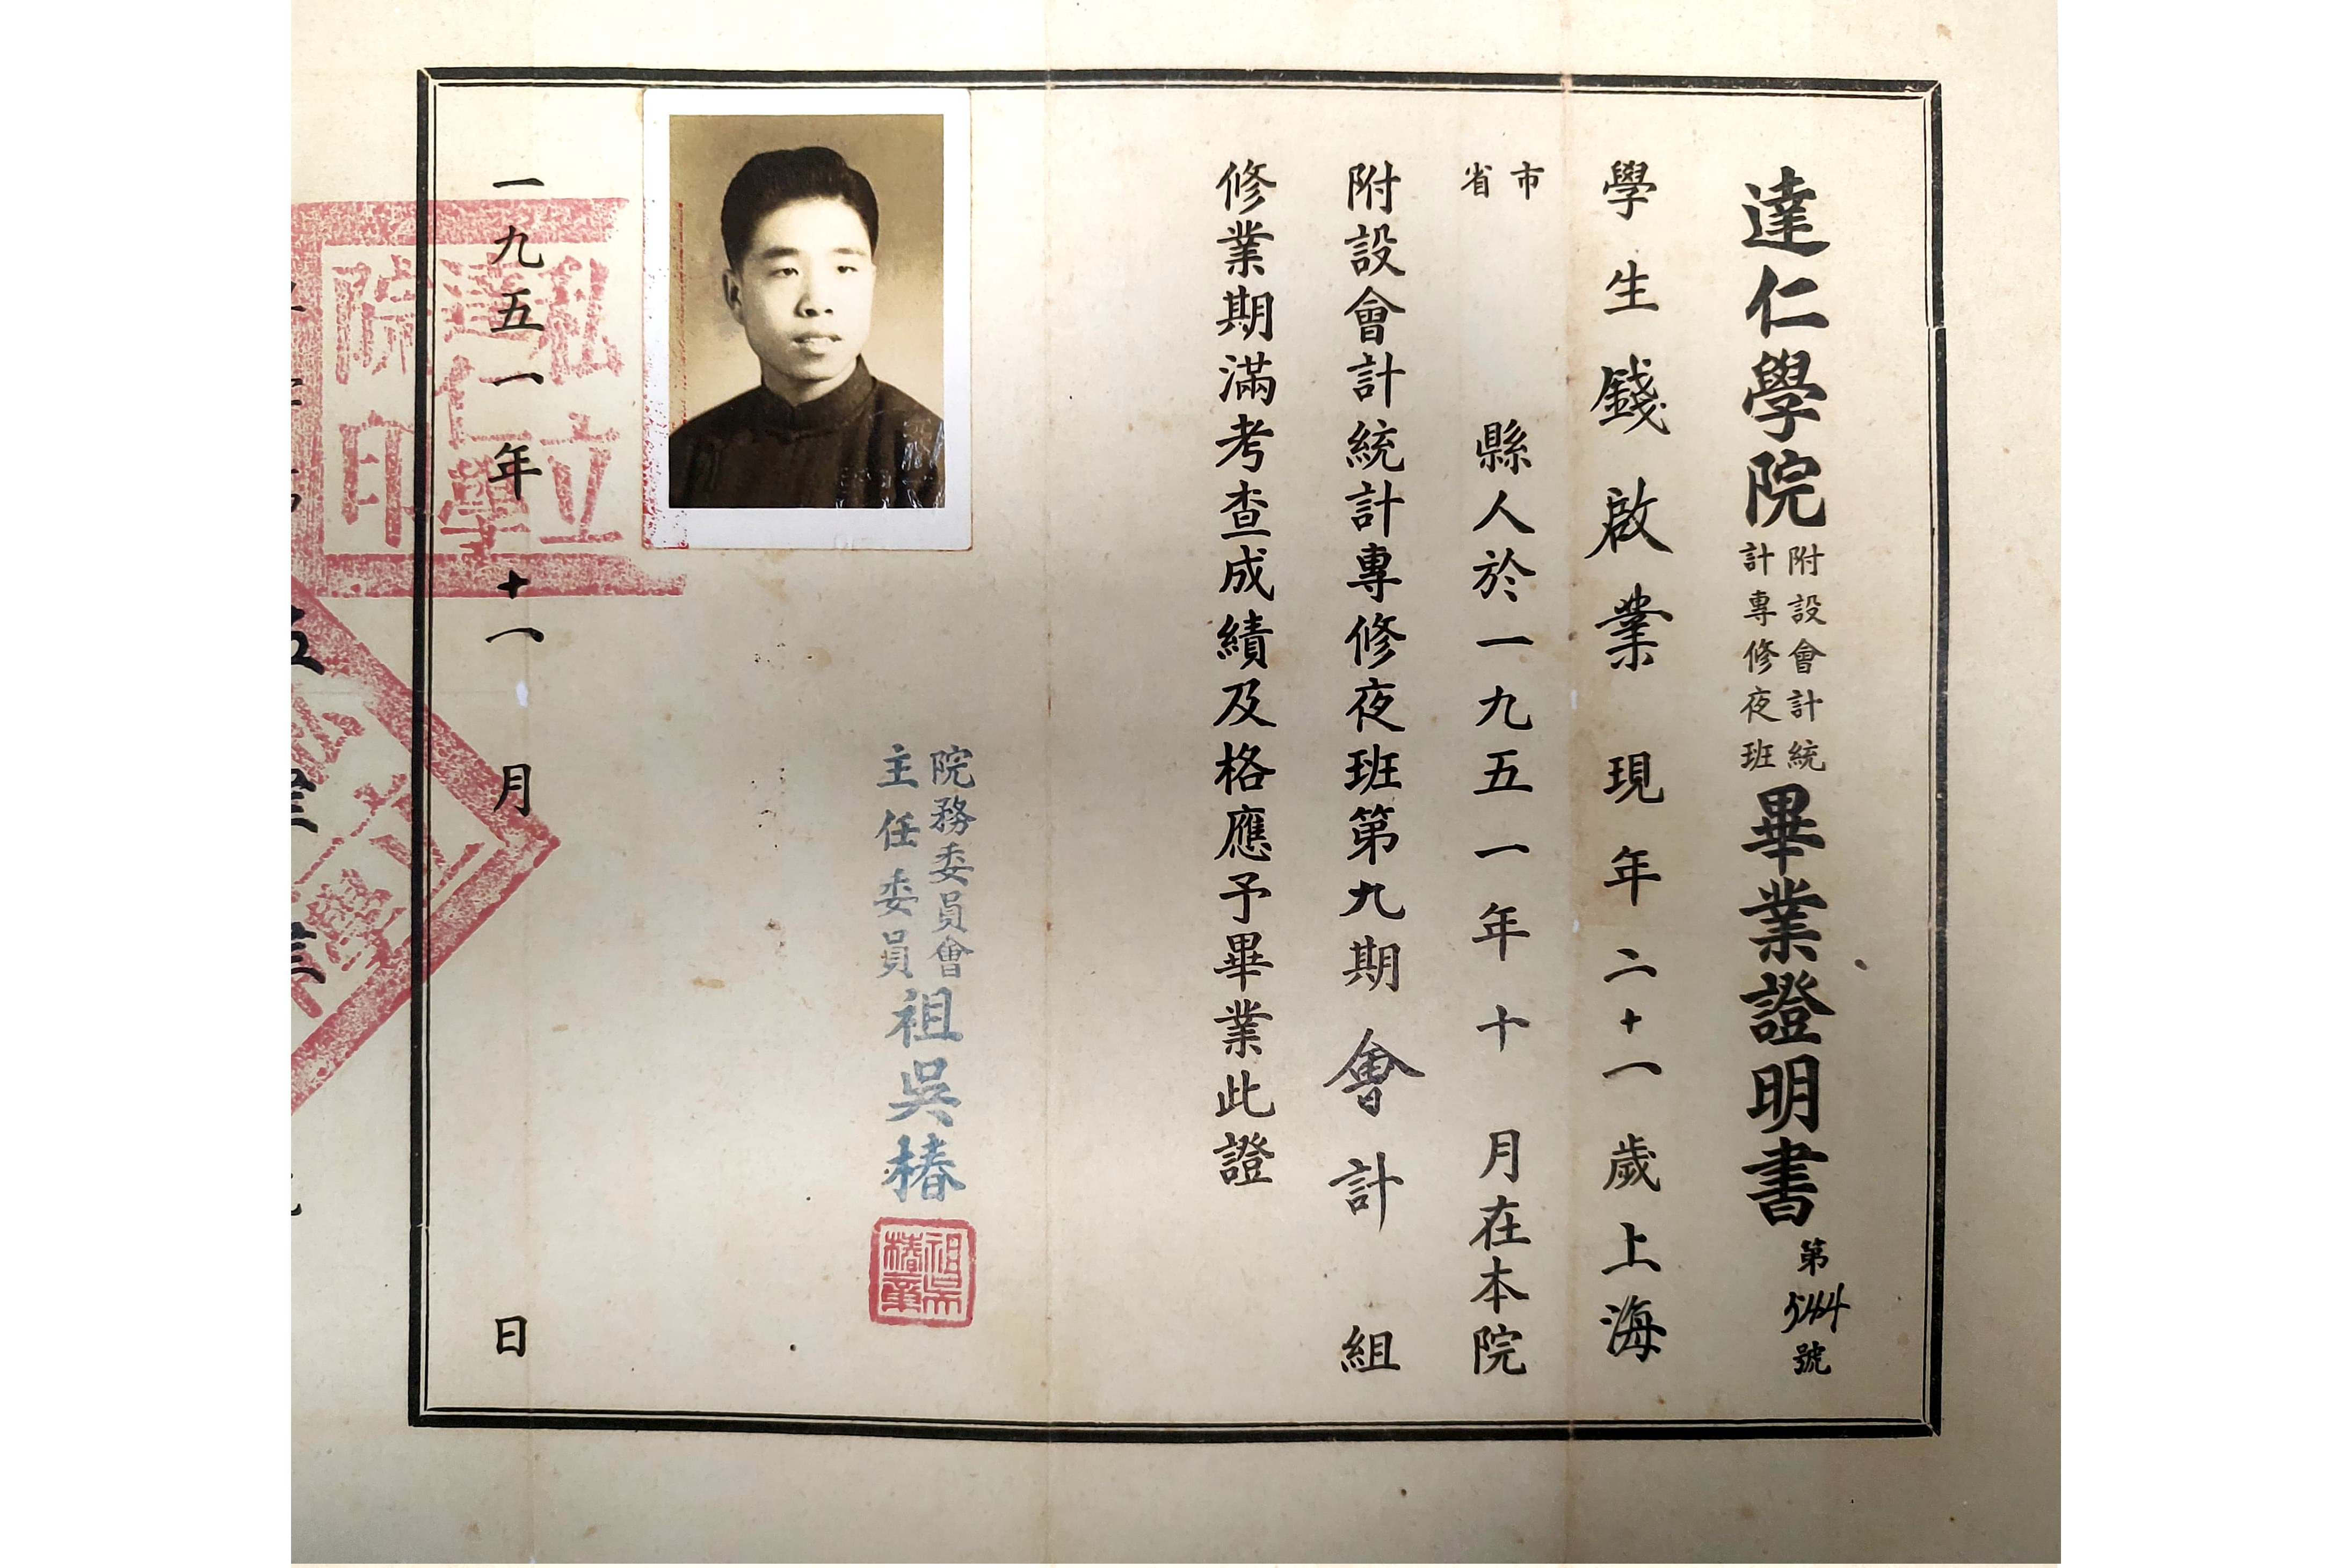 達仁學院附設會計統計專修夜班畢業證明書第544號
學生錢啟業現年二十一歲上海
市省縣人於一九五一年十月在本院
附設會計統計專修夜班第九期會計組
修業期滿考查成績及格應予畢業此證
院務委員會
主任委員祖吳椿
祖吳椿章
一九五一年十一月日
私立達仁學院印